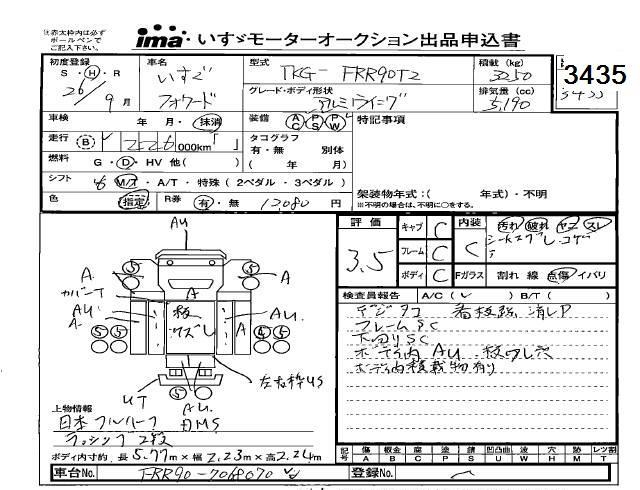 ※赤太枠内は必ず
ボールペンで
ご記入下さい。
ima・いすゞモーターオークション出品申込書
初度登録 S・H・R 26年 9月
車名 いすゞ フォワード
型式 TKG- FRR90T2
グレード・ボディ形状 アルミウイング
積載 (kg) 3250
排気量 (cc) 5,190
3435
3435
車検 年 月・抹消
装備 AC PS PW
特記事項
走行 B 000km
タコグラフ 有・無 別体 ( 年 月)
燃料 G・D・HV 他( )
シフト 6 M/T・A/T・特殊 ( 2ペダル・3ペダル )
架装物年式：( 年式)・不明
※不明の場合は、不明に○をする。
色 指定 R券 有・無 12080 円
評価 3.5
キャブ C
フレーム C
ボディ C
内装 C
汚れ 破れ ヤニ スレ
Fガラス 割れ 線 点傷 イバリ
検査員報告 A/C ( ✓ ) B/T ( )
デジタコ 看板跡 消しP
フレームSC
下回りSC
ボディ内 AU
ボディ内積載物有り
AU
A A
カバーT
A
AU
A
板
A
AU.
A
左右枠US
UT
AU.
5 5 5 5 5 5 5
上物情報
日本フルハーフ DMS
ラッシング2段
ボディ内寸約 長5.77m×幅2.23m×高2.24m
記号 傷 A 板金 B 腐 C 塗 P 錆 S 凹凸曲 U 波 W 穴 H 跡 M レツ割 T
車台No. FRR90-7068070
登録No.